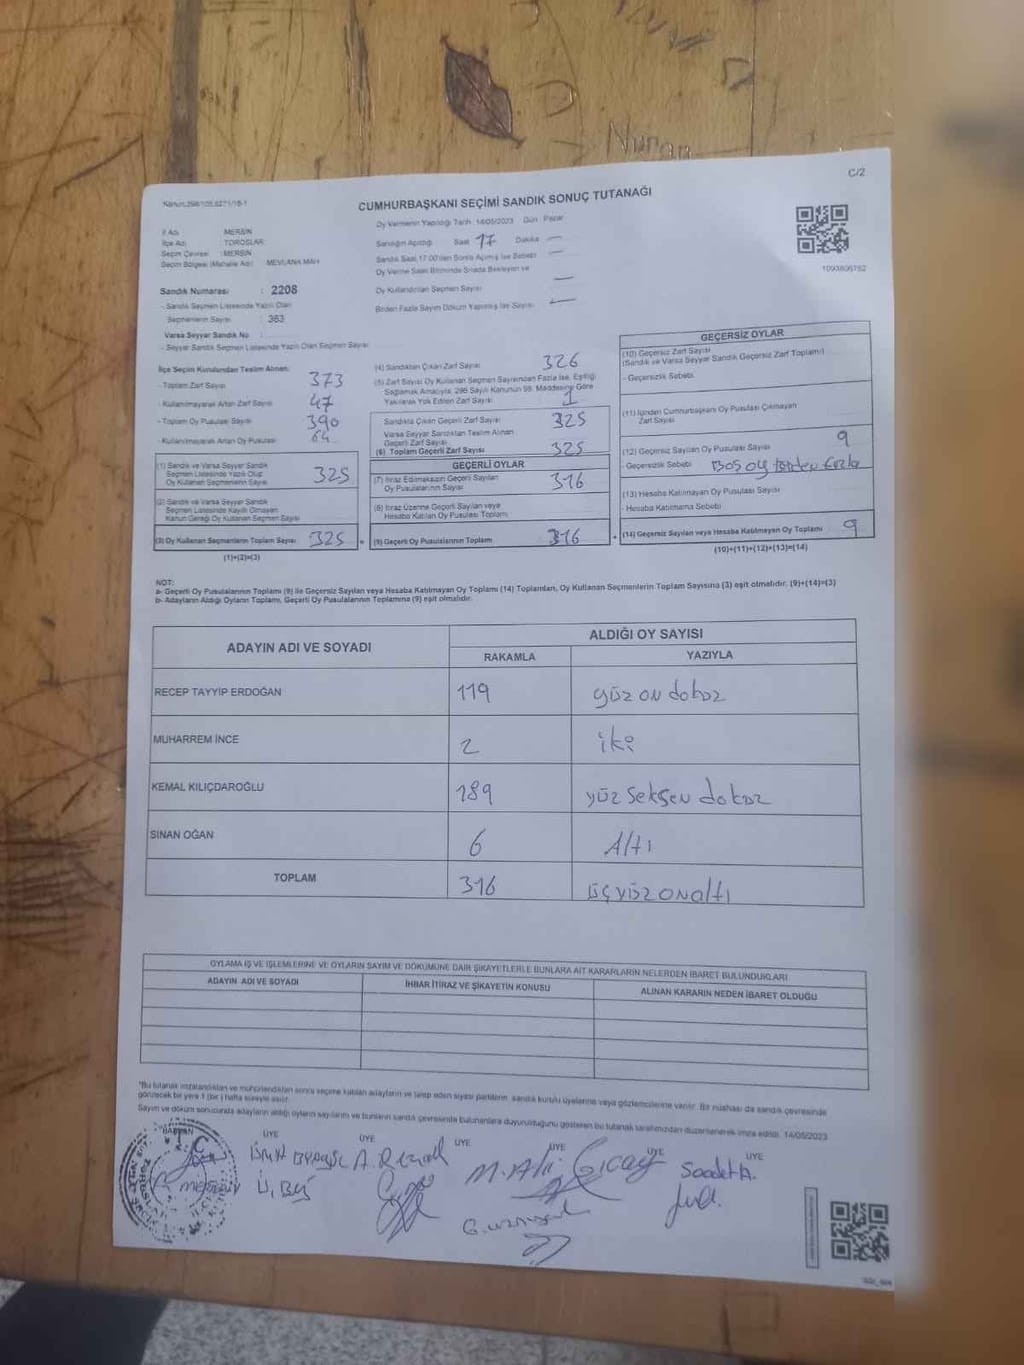 Nuran
C/2
CUMHURBAŞKANI SEÇİMİ SANDIK SONUÇ TUTANAĞI
Oy Vermenin Yapıldığı Tarih : 14/05/2023 Gün : Pazar
İl Adı : MERSİN
İlçe Adı : TOROSLAR
Seçim Çevresi : MERSİN
Seçim Bölgesi (Mahalle Adı) : MEVLANA MAH.
Sandığın Açıldığı Saat 17 Dakika —
Sandık Saat 17.00'den Sonra Açılmış İse Sebebi —
Oy Verme Saati Bitiminde Sırada Bekleyen ve
Oy Kullandırılan Seçmen Sayısı —
Birden Fazla Sayım Döküm Yapılmış İse Sayısı —
1093806782
Sandık Numarası : 2208
- Sandık Seçmen Listesinde Yazılı Olan
Seçmenlerin Sayısı : 363
Varsa Seyyar Sandık No :
- Seyyar Sandık Seçmen Listesinde Yazılı Olan Seçmen Sayısı
İlçe Seçim Kurulundan Teslim Alınan:
- Toplam Zarf Sayısı 373
- Kullanılmayarak Artan Zarf Sayısı 47
- Toplam Oy Pusulası Sayısı 390
- Kullanılmayarak Artan Oy Pusulası 64
(1) Sandık ve Varsa Seyyar Sandık
Seçmen Listesinde Yazılı Olup
Oy Kullanan Seçmenlerin Sayısı 325
(2) Sandık ve Varsa Seyyar Sandık
Seçmen Listesinde Kayıtlı Olmayan
Kanun Gereği Oy Kullanan Seçmen Sayısı
(3) Oy Kullanan Seçmenlerin Toplam Sayısı 325
(1)+(2)=(3)
(4) Sandıktan Çıkan Zarf Sayısı 326
(5) Zarf Sayısı Oy Kullanan Seçmen Sayısından Fazla İse, Eşitliği
Sağlamak Amacıyla, 298 Sayılı Kanunun 98. Maddesine Göre
Yakılarak Yok Edilen Zarf Sayısı 1
Sandıkta Çıkan Geçerli Zarf Sayısı 325
Varsa Seyyar Sandıktan Teslim Alınan
Geçerli Zarf Sayısı
(6) Toplam Geçerli Zarf Sayısı 325
GEÇERLİ OYLAR
(7) İtiraz Edilmeksizin Geçerli Sayılan
Oy Pusulalarının Sayısı 316
(8) İtiraz Üzerine Geçerli Sayılan veya
Hesaba Katılan Oy Pusulası Toplamı
(9) Geçerli Oy Pusulalarının Toplamı 316
GEÇERSİZ OYLAR
(10) Geçersiz Zarf Sayısı
(Sandık ve Varsa Seyyar Sandık Geçersiz Zarf Toplamı)
- Geçersizlik Sebebi
(11) İçinden Cumhurbaşkanı Oy Pusulası Çıkmayan
Zarf Sayısı
(12) Geçersiz Sayılan Oy Pusulası Sayısı 9
- Geçersizlik Sebebi Boş oy birden fazla
(13) Hesaba Katılmayan Oy Pusulası Sayısı
- Hesaba Katılmama Sebebi
(14) Geçersiz Sayılan veya Hesaba Katılmayan Oy Toplamı 9
(10)+(11)+(12)+(13)=(14)
NOT:
a- Geçerli Oy Pusulalarının Toplamı (9) ile Geçersiz Sayılan veya Hesaba Katılmayan Oy Toplamı (14) Toplamları, Oy Kullanan Seçmenlerin Toplam Sayısına (3) eşit olmalıdır. (9)+(14)=(3)
b- Adayların Aldığı Oyların Toplamı, Geçerli Oy Pusulalarının Toplamına (9) eşit olmalıdır.
ADAYIN ADI VE SOYADI
ALDIĞI OY SAYISI
RAKAMLA YAZIYLA
RECEP TAYYİP ERDOĞAN 119 yüz on dokoz
MUHARREM İNCE 2 iki
KEMAL KILIÇDAROĞLU 189 yüz seksen dokoz
SİNAN OĞAN 6 Altı
TOPLAM 316 üçyüz onaltı
OYLAMA İŞ VE İŞLEMLERİNE VE OYLARIN SAYIM VE DÖKÜMÜNE DAİR ŞİKAYETLERLE BUNLARA AİT KARARLARIN NELERDEN İBARET BULUNDUKLARI
ADAYIN ADI VE SOYADI İHBAR İTİRAZ VE ŞİKAYETİN KONUSU ALINAN KARARIN NEDEN İBARET OLDUĞU
*Bu tutanak imzalandıktan ve mühürlendikten sonra seçime katılan adayların ve talep eden siyasi partilerin sandık kurulu üyelerine veya gözlemcilerine verilir. Bir nüshası da sandık çevresinde
görülecek bir yere 1 (bir) hafta süreyle asılır.
Sayım ve döküm sonucunda adayların aldığı oyların sayılarını ve bunların sandık çevresinde bulunanlara duyurulduğunu gösteren bu tutanak tarafımızdan düzenlenerek imza edildi. 14/05/2023
BAŞKAN ÜYE ÜYE ÜYE ÜYE ÜYE ÜYE
T.C.
M. Ali Saadet A.